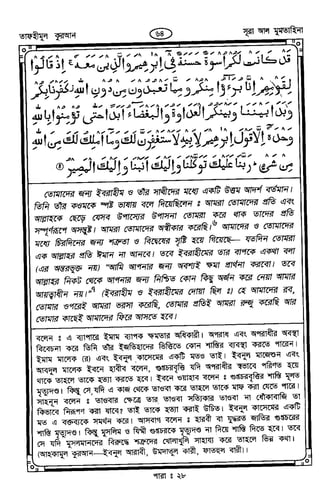 তাফহীমুল কুরআন
৬৪
সূরা আল মুমতাহিনা
قَدْ كَانَتْ لَكُمْ أُسْوَةٌ حَسَنَةٌ فِي إِبْرٰهِيْمَ وَالَّذِيْنَ مَعَهُ ۚ إِذْ قَالُوْا
لِقَوْمِهِمْ إِنَّا بُرَءٰؤُا مِنْكُمْ وَمِمَّا تَعْبُدُوْنَ مِنْ دُوْنِ اللّٰهِ ۖ كَفَرْنَا بِكُمْ
وَبَدَا بَيْنَنَا وَبَيْنَكُمُ الْعَدَاوَةُ وَالْبَغْضَاءُ أَبَدًا حَتّٰى تُؤْمِنُوْا بِاللّٰهِ
وَحْدَهُ إِلَّا قَوْلَ إِبْرٰهِيْمَ لِأَبِيْهِ لَأَسْتَغْفِرَنَّ لَكَ وَمَا أَمْلِكُ لَكَ مِنَ اللّٰهِ
مِنْ شَيْءٍ ۖ رَبَّنَا عَلَيْكَ تَوَكَّلْنَا وَإِلَيْكَ أَنَبْنَا وَإِلَيْكَ الْمَصِيْرُ
তোমাদের জন্য ইবরাহীম ও তাঁর সাথীদের মধ্যে একটি উত্তম আদর্শ বর্তমান।
তিনি তাঁর কওমকে স্পষ্ট ভাষায় বলে দিয়েছিলেন ঃ আমরা তোমাদের প্রতি এবং
আল্লাহকে ছেড়ে যেসব উপাস্যের উপাসনা তোমরা করে থাক তাদের প্রতি
সম্পূর্ণরূপে অসন্তুষ্ট। আমরা তোমাদের অস্বীকার করেছি।৬ আমাদের ও তোমাদের
মধ্যে চিরদিনের জন্য শত্রুতা ও বিদ্বেষের সৃষ্টি হয়ে গিয়েছে— যতদিন তোমরা
এক আল্লাহর প্রতি ঈমান না আনবে। তবে ইবরাহীমের তার বাপকে একথা বলা
(এর অন্তরভুক্ত নয়) "আমি আপনার জন্য অবশ্যই ক্ষমা প্রার্থনা করবো। তবে
আল্লাহর নিকট থেকে আপনার জন্য নিশ্চিত কোন কিছু অর্জন করে নেয়া আমার
আয়ত্বাধীন নয়।"৭ (ইবরাহীম ও ইবরাহীমের দোয়া ছিল ঃ) হে আমাদের রব,
তোমার ওপরেই আমরা ভরসা করেছি, তোমার প্রতিই আমরা রুজু করেছি আর
তোমার কাছেই আমাদের ফিরে আসতে হবে।
বলেন ঃ এ ব্যাপারে ইমাম ব্যাপক ক্ষমতার অধিকারী। অপরাধ এবং অপরাধীর অবস্থা
বিবেচনা করে তিনি তাঁর ইজতিহাদের ভিত্তিতে কোন শাস্তির ব্যবস্থা করতে পারেন।
ইমাম মালেক (র) এবং ইবনুল কাসেমের একটি মতও তাই। ইবনুল মাজেশুন এবং
আবদুল মালেক ইবনে হাবীব বলেন, গুপ্তচরবৃত্তি যদি অপরাধীর স্বভাবে পরিণত হয়ে
থাকে তাহলে তাকে হত্যা করতে হবে। ইবনে ওয়াহাব বলেন ঃ গুপ্তচরবৃত্তির শাস্তি মূলত
মৃত্যুদণ্ড। কিন্তু সে যদি এ কাজ থেকে তাওবা করে তাহলে তাকে মাফ করা যেতে পারে।
সাহনূন বলেন ঃ তাওবার ক্ষেত্রে তার তাওবা সত্যিকার তাওবা না ধোঁকাবাজি তা
কিভাবে নিরূপণ করা যাবে? তাই তাকে হত্যা করাই উচিত। ইবনুল কাসেমের একটি
মত এ বক্তব্যকে সমর্থন করে। আসবাগ বলেন ঃ হারবী বা যুদ্ধরত জাতির গুপ্তচরের
শাস্তি মৃত্যুদণ্ড। কিন্তু মুসলিম ও যিম্মী গুপ্তচরকে মৃত্যুদণ্ড না দিয়ে শাস্তি দিতে হবে। তবে
সে যদি মুসলমানদের বিরুদ্ধে শত্রুদের খোলাখুলি সাহায্য করে তাহলে ভিন্ন কথা।
(আহকামুল কুরআন—ইবনুল আরাবী, উমদাতুল কারী, ফাতহুল বারী)।
পারা ঃ ২৮